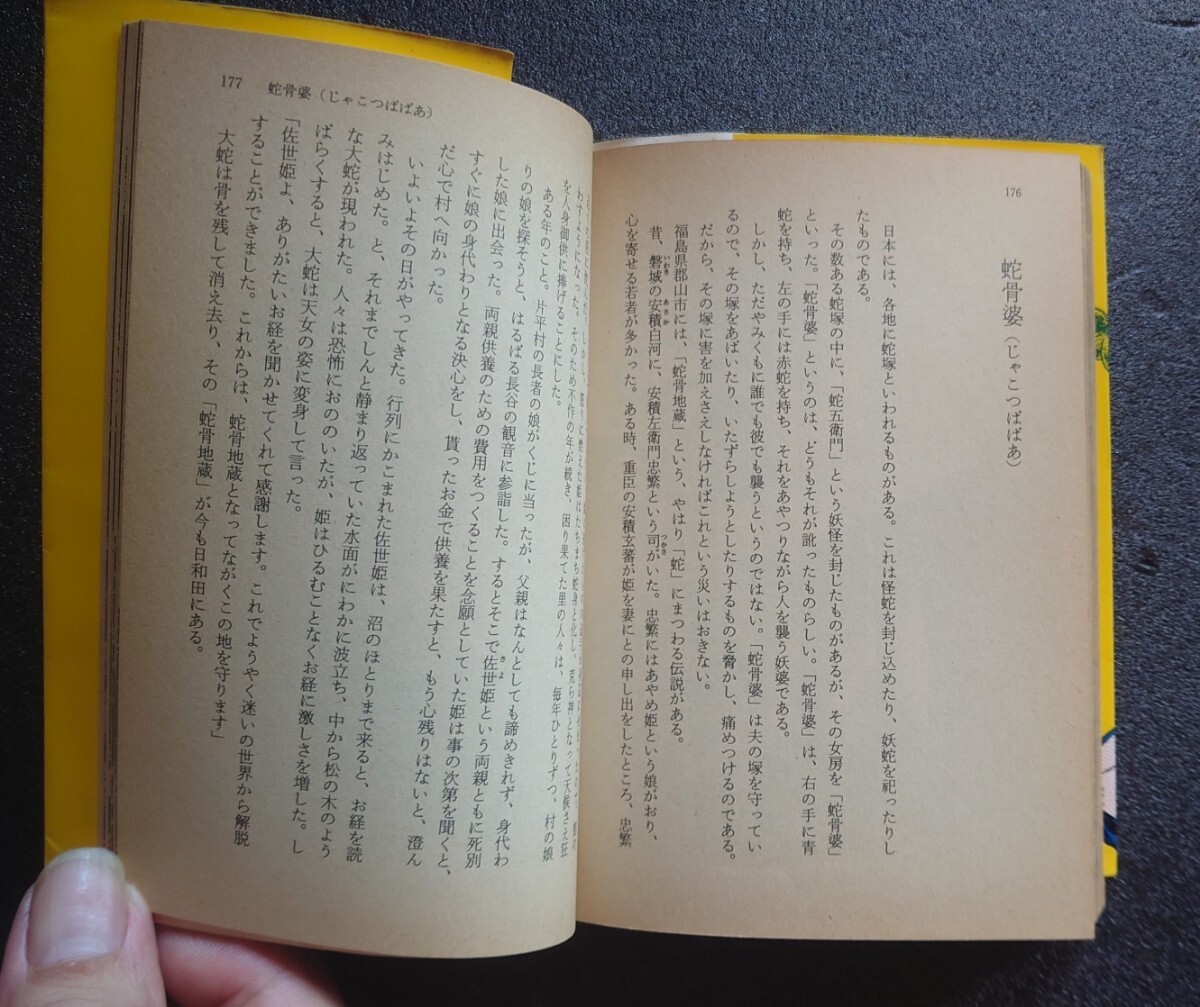 176
蛇骨婆(じゃこつばばあ)
日本には、各地に蛇塚といわれるものがある。これは怪蛇を封じ込めたり、妖蛇を祀ったりし
たものである。
その数ある蛇塚の中に、「蛇五衛門」という妖怪を封じたものがあるが、その女房を「蛇骨婆」
といった。「蛇骨婆」というのは、どうもそれが訛ったものらしい。「蛇骨婆」は、右の手に青
蛇を持ち、左の手には赤蛇を持ち、それをあやつりながら人を襲う妖婆である。
しかし、ただやみくもに誰でも彼でも襲うというのではない。「蛇骨婆」は夫の塚を守ってい
るので、その塚をあばいたり、いたずらしようとしたりするものを脅かし、痛めつけるのである。
だから、その塚に害を加えさえしなければこれという災いはおきない。
福島県郡山市には、「蛇骨地蔵」という、やはり「蛇」にまつわる伝説がある。
昔、磐城の安積白河に、安積左衛門忠繁という司がいた。忠繁にはあやめ姫という娘がおり、
心を寄せる若者が多かった。ある時、重臣の安積玄蕃が姫を妻にとの申し出をしたところ、忠繁
177 蛇骨婆(じゃこつばばあ)
に燃えた姫はたちまち蛇身と化し、荒ら神となって天候さえ狂
わすようになった。そのため不作の年が続き、困り果てた里の人々は、毎年ひとりずつ、村の娘
を人身御供に捧げることにした。
ある年のこと。片平村の長者の娘がくじに当ったが、父親はなんとしても諦めきれず、身代わ
りの娘を探そうと、はるばる長谷の観音に参詣した。するとそこで佐世姫という両親ともに死別
した娘に出会った。両親供養のための費用をつくることを念願としていた姫は事の次第を聞くと、
すぐに娘の身代わりとなる決心をし、貰ったお金で供養を果たすと、もう心残りはないと、澄ん
だ心で村へ向かった。
いよいよその日がやってきた。行列にかこまれた佐世姫は、沼のほとりまで来ると、お経を読
みはじめた。と、それまでしんと静まり返っていた水面がにわかに波立ち、中から松の木のよう
な大蛇が現われた。人々は恐怖におののいたが、姫はひるむことなくお経に激しさを増した。し
ばらくすると、大蛇は天女の姿に変身して言った。
「佐世姫よ、ありがたいお経を聞かせてくれて感謝します。これでようやく迷いの世界から解脱
することができました。これからは、蛇骨地蔵となってながくこの地を守ります」
大蛇は骨を残して消え去り、その「蛇骨地蔵」が今も日和田にある。